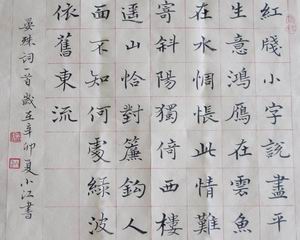 紅牋小字說盡平
生意鴻鴈在雲魚
在水惆悵此情難
寄斜陽獨倚西樓
遥山恰對簾鈎人
面不知何處綠波
依舊東流
晏殊詞一首歲在辛卯夏小江書